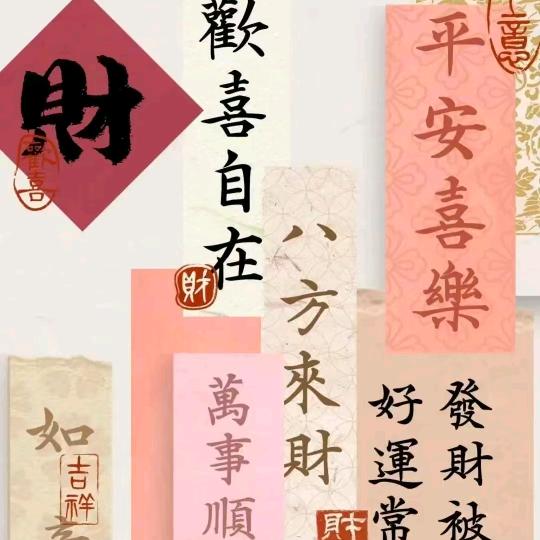 財
歡喜
歡喜自在
財
八方來財
平安喜樂
意
如
吉祥
萬事順
財
發財被
好運常